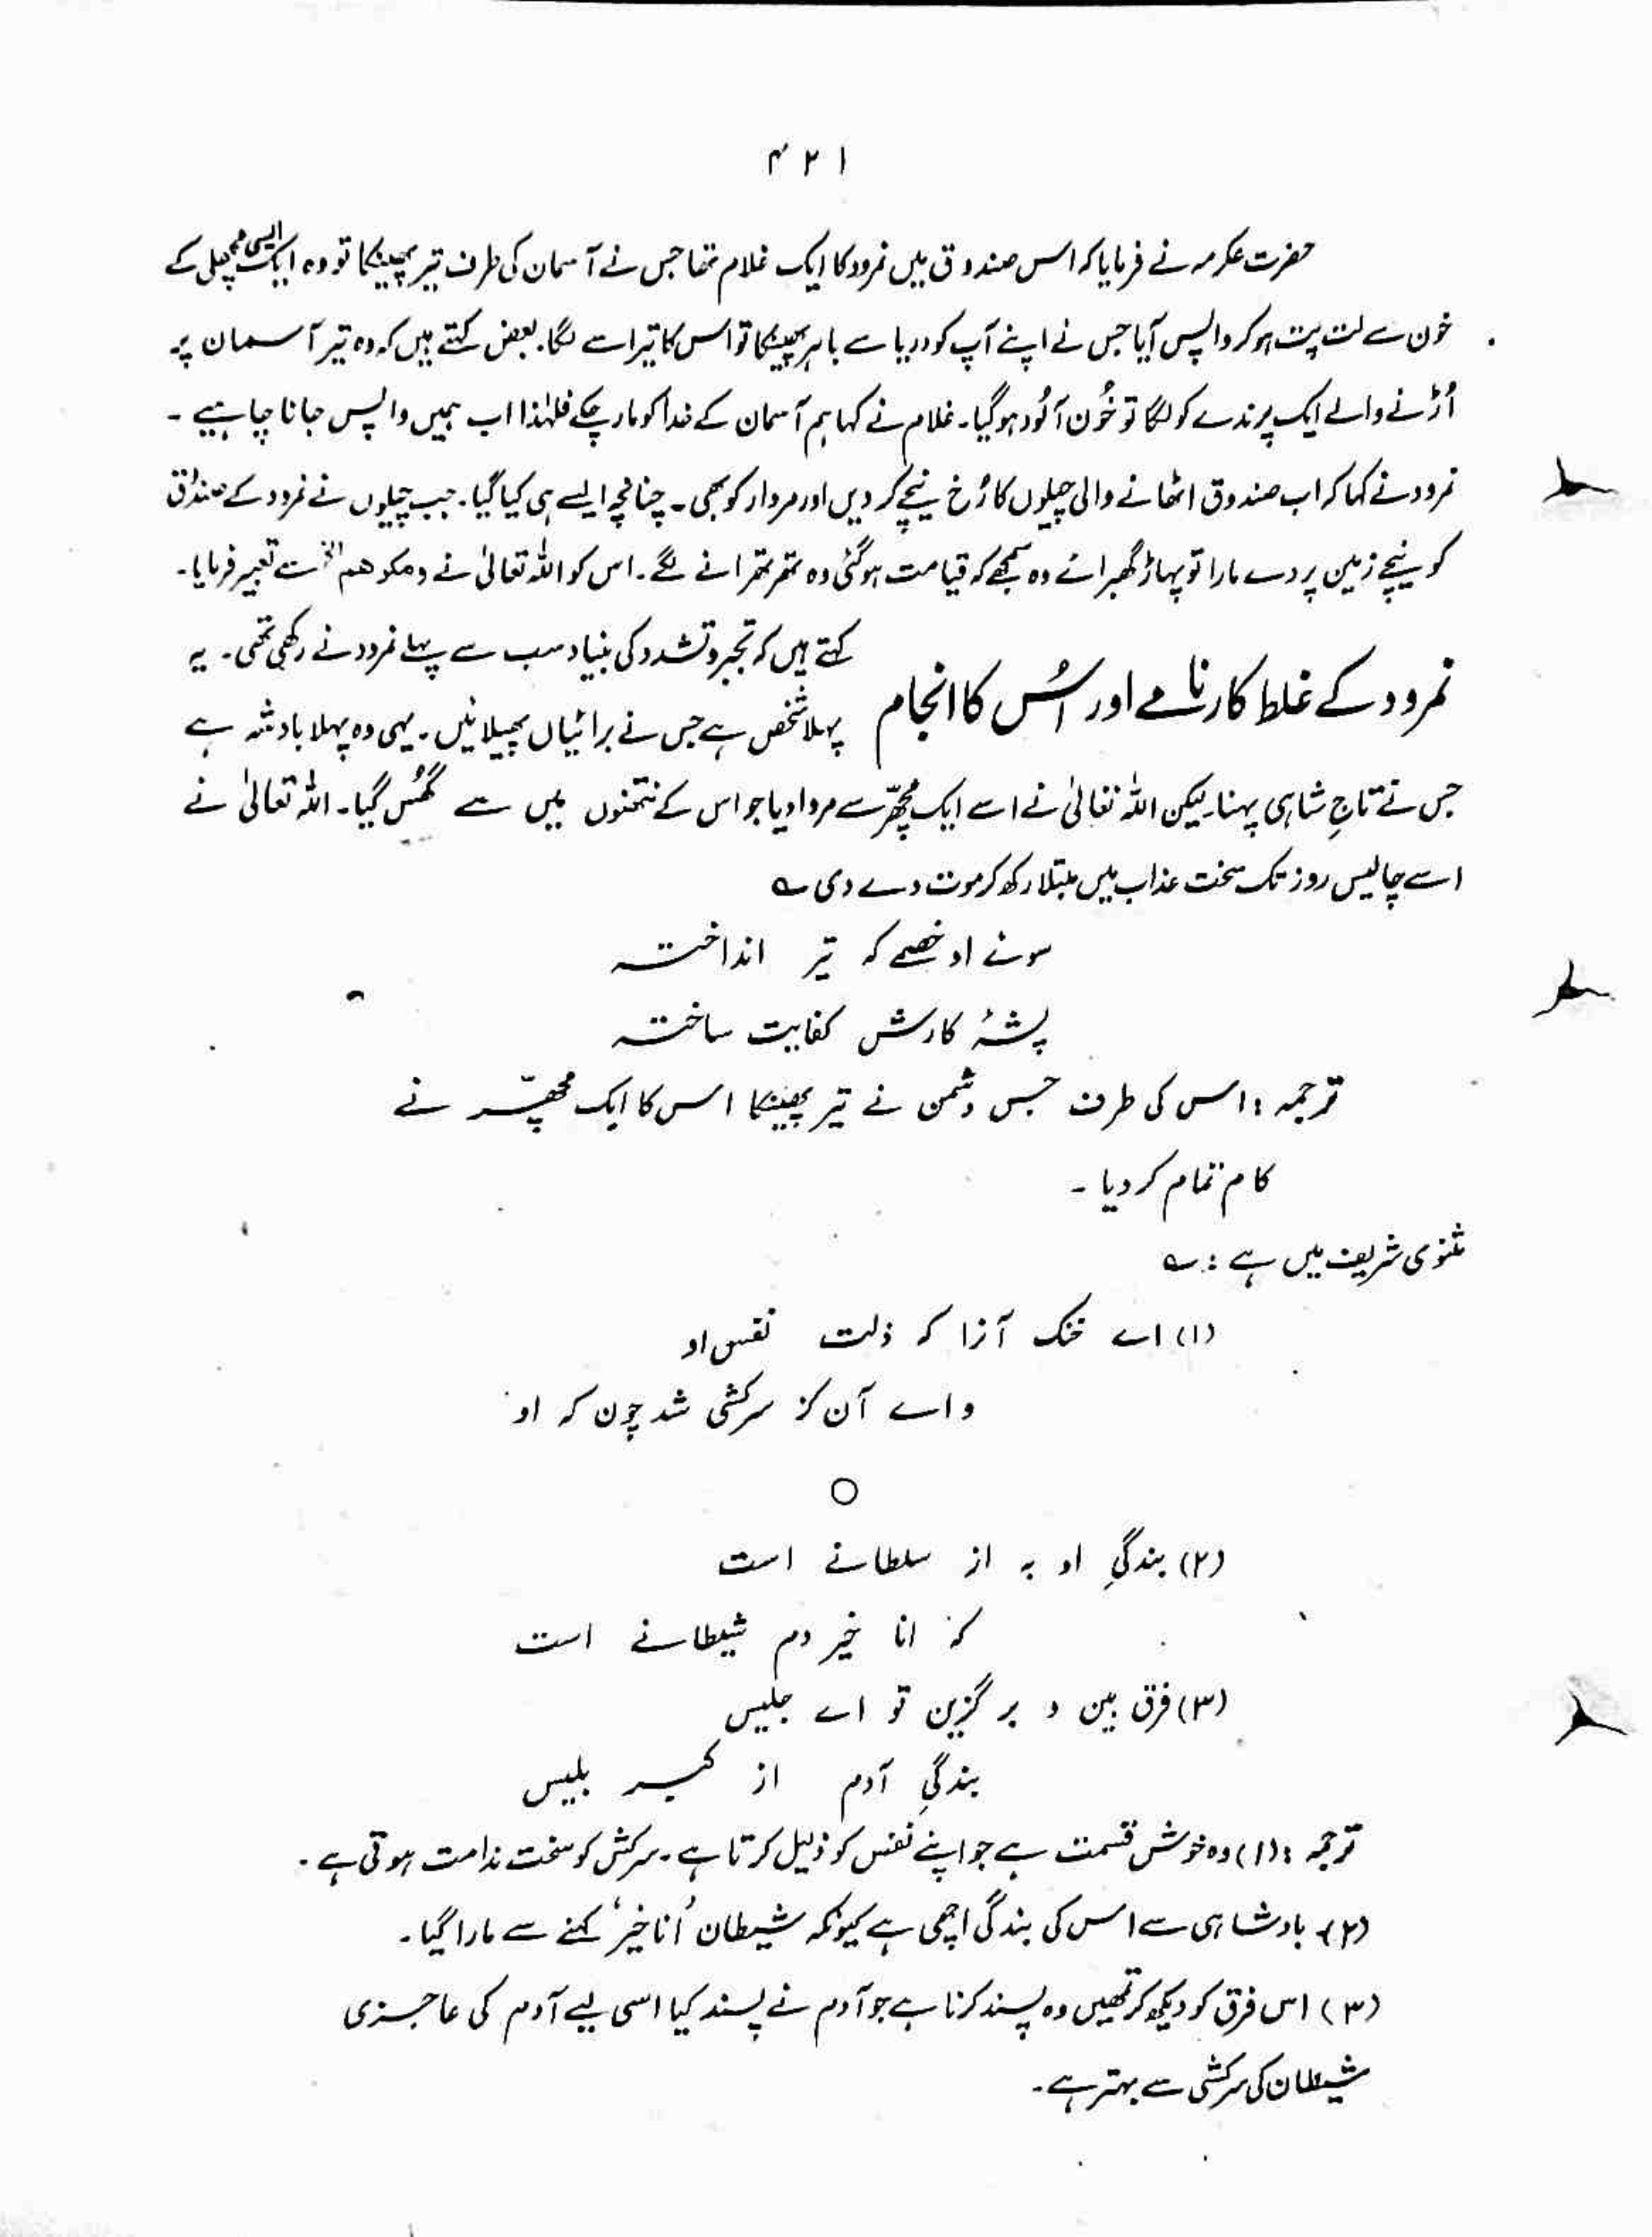 ۴۲۱
حضرت عکرمہ نے فرمایا کہ اس صندوق میں نمرود کا ایک غلام تھا جس نے آسمان کی طرف تیر پھینکا تو وہ ایک ایسی مچھلی کے
خون سے لت پت ہو کر واپس آیا جس نے اپنے آپ کو دریا سے باہر پھینکا تو اس کا تیر اسے لگا۔ بعض کہتے ہیں کہ وہ تیر آسمان پر
اُڑنے والے ایک پرندے کو لگا تو خُون آلُود ہو گیا۔ غلام نے کہا ہم آسمان کے خدا کو مار چکے فلہٰذا اب ہمیں واپس جانا چاہیے ۔
نمرود نے کہا کہ اب صندوق اٹھانے والی چیلوں کا رُخ نیچے کر دیں اور مردار کو بھی ۔ چنانچہ ایسے ہی کیا گیا۔ جب چیلوں نے نمرود کے صندوق
کو نیچے زمین پر دے مارا تو پہاڑ گھبرائے وہ سمجھے کہ قیامت ہو گئی وہ تھرتھرانے لگے ۔ اس کو اللہ تعالیٰ نے ومکرھم الخ سے تعبیر فرمایا۔
نمرود کے غلط کارنامے اور اُس کا انجام
کہتے ہیں کہ تجبر و تشدد کی بنیاد سب سے پہلے نمرود نے رکھی تھی ۔ یہ
پہلا شخص ہے جس نے برائیاں پھیلائیں ۔ یہی وہ پہلا بادشہ ہے
جس نے تاجِ شاہی پہنا۔ لیکن اللہ تعالیٰ نے اسے ایک مچھّر سے مروا دیا جو اس کے نتھنوں میں سے گھُس گیا۔ اللہ تعالیٰ نے
اسے چالیس روز تک سخت عذاب میں مبتلا رکھ کر موت دے دی ؎
سوئے او خصمے کہ تیر انداختہ
پشۂ کارش کفایت ساختہ
ترجمہ : اس کی طرف جس دشمن نے تیر پھینکا اس کا ایک مچھّر نے
کام تمام کر دیا ۔
مثنوی شریف میں ہے : ؎
(۱) اے خنک آنرا کہ ذلت نفس او
واے آن کز سرکشی شد چون کہ او
(۲) بندگیِ او بہ از سلطانے است
کہ انا خیر دم شیطانے است
(۳) فرق بین و برگزین تو اے جلیس
بندگیِ آدم از کبر بلیس
ترجمہ : (۱) وہ خوش قسمت ہے جو اپنے نفس کو ذلیل کرتا ہے ۔ سرکش کو سخت ندامت ہوتی ہے ۔
(۲) بادشاہی سے اس کی بندگی اچھی ہے کیونکہ شیطان 'اَنا خیر' کہنے سے مارا گیا ۔
(۳) اس فرق کو دیکھ کر تمھیں وہ پسند کرنا ہے جو آدم نے پسند کیا اسی لیے آدم کی عاجزی
شیطان کی سرکشی سے بہتر ہے ۔